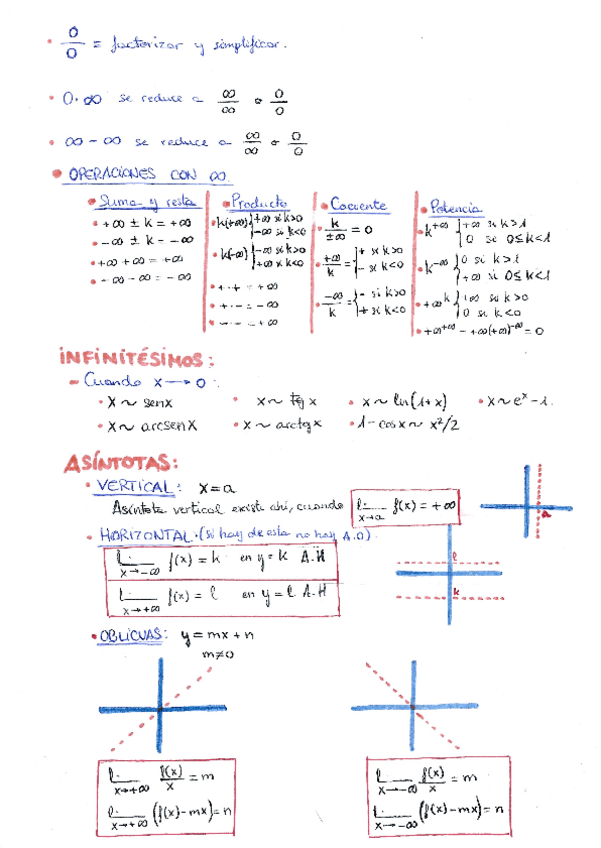 • 0/0 = factorizar y simplificar.
• 0·∞ se reduce a ∞/∞ o 0/0
• ∞-∞ se reduce a ∞/∞ o 0/0
• OPERACIONES CON ∞
• Suma y resta
• +∞ ± k = +∞
• -∞ ± k = -∞
• +∞ + ∞ = +∞
• -∞ - ∞ = -∞
• Producto
• k(+∞) { +∞ si k>0
-∞ si k<0
• k(-∞) { -∞ si k>0
+∞ si k<0
• + · + = +∞
• + · - = -∞
• - · - = +∞
• Cociente
• k/±∞ = 0
• +∞/k = { + si k>0
- si k<0
• -∞/k = { - si k>0
+ si k<0
• Potencia
• k^+∞ { +∞ si k>1
0 si 0≤k<1
• k^-∞ { 0 si k>1
+∞ si 0≤k<1
• +∞^k { +∞ si k>0
0 si k<0
• +∞^+∞ = +∞ (+∞)^-∞ = 0
INFINITÉSIMOS:
- Cuando x → 0 :
• x ~ senx • x ~ tg x • x ~ ln(1+x) • x ~ e^x - 1.
• x ~ arcsenx • x ~ arctgx • 1-cosx ~ x²/2
ASÍNTOTAS:
• VERTICAL: x = a
Asíntota vertical existe ahí, cuando lim x→a f(x) = +∞
a
• HORIZONTAL. (si hay de esta no hay A.O)
lim x→-∞ f(x) = k en y = k A.H
lim x→+∞ f(x) = l en y = l A.H
l
k
• OBLICUAS: y = mx + n
m≠0
lim x→+∞ f(x)/x = m
lim x→+∞ (f(x)-mx) = n
lim x→-∞ f(x)/x = m
lim x→-∞ (f(x)-mx) = n